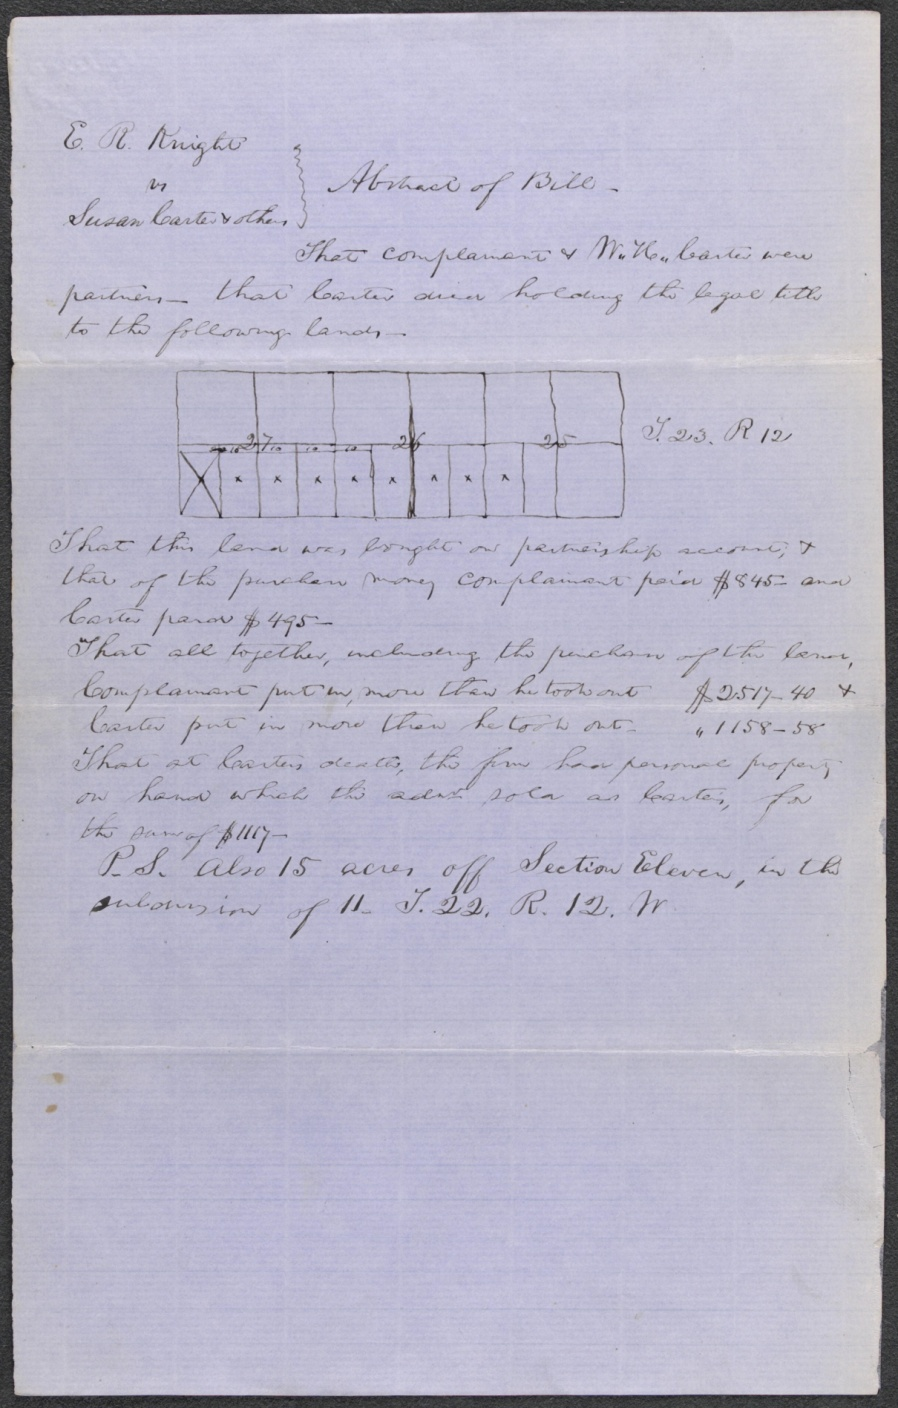 E. R. Knight
vs
Susan Carter & others
Abstract of Bill -
That complainant & W. H. Carter were
partners - that Carter died holding the legal title
to the following lands -
27 26 25
T. 23. R 12
10 10 10 10
x x x x x x x x x
That this land was bought on partnership account, &
that of the purchase money complainant paid $845- and
Carter paid $495-
That all together, including the purchase of the land,
Complainant put in, more than he took out $2517-40 &
Carter put in more than he took out - " 1158-58
That at Carters death, the firm had personal property
on hand which the admr sold as Carters, for
the sum of $1117-
P.S. Also 15 acres off Section Eleven, in the
subdivision of 11- T. 22. R. 12. W